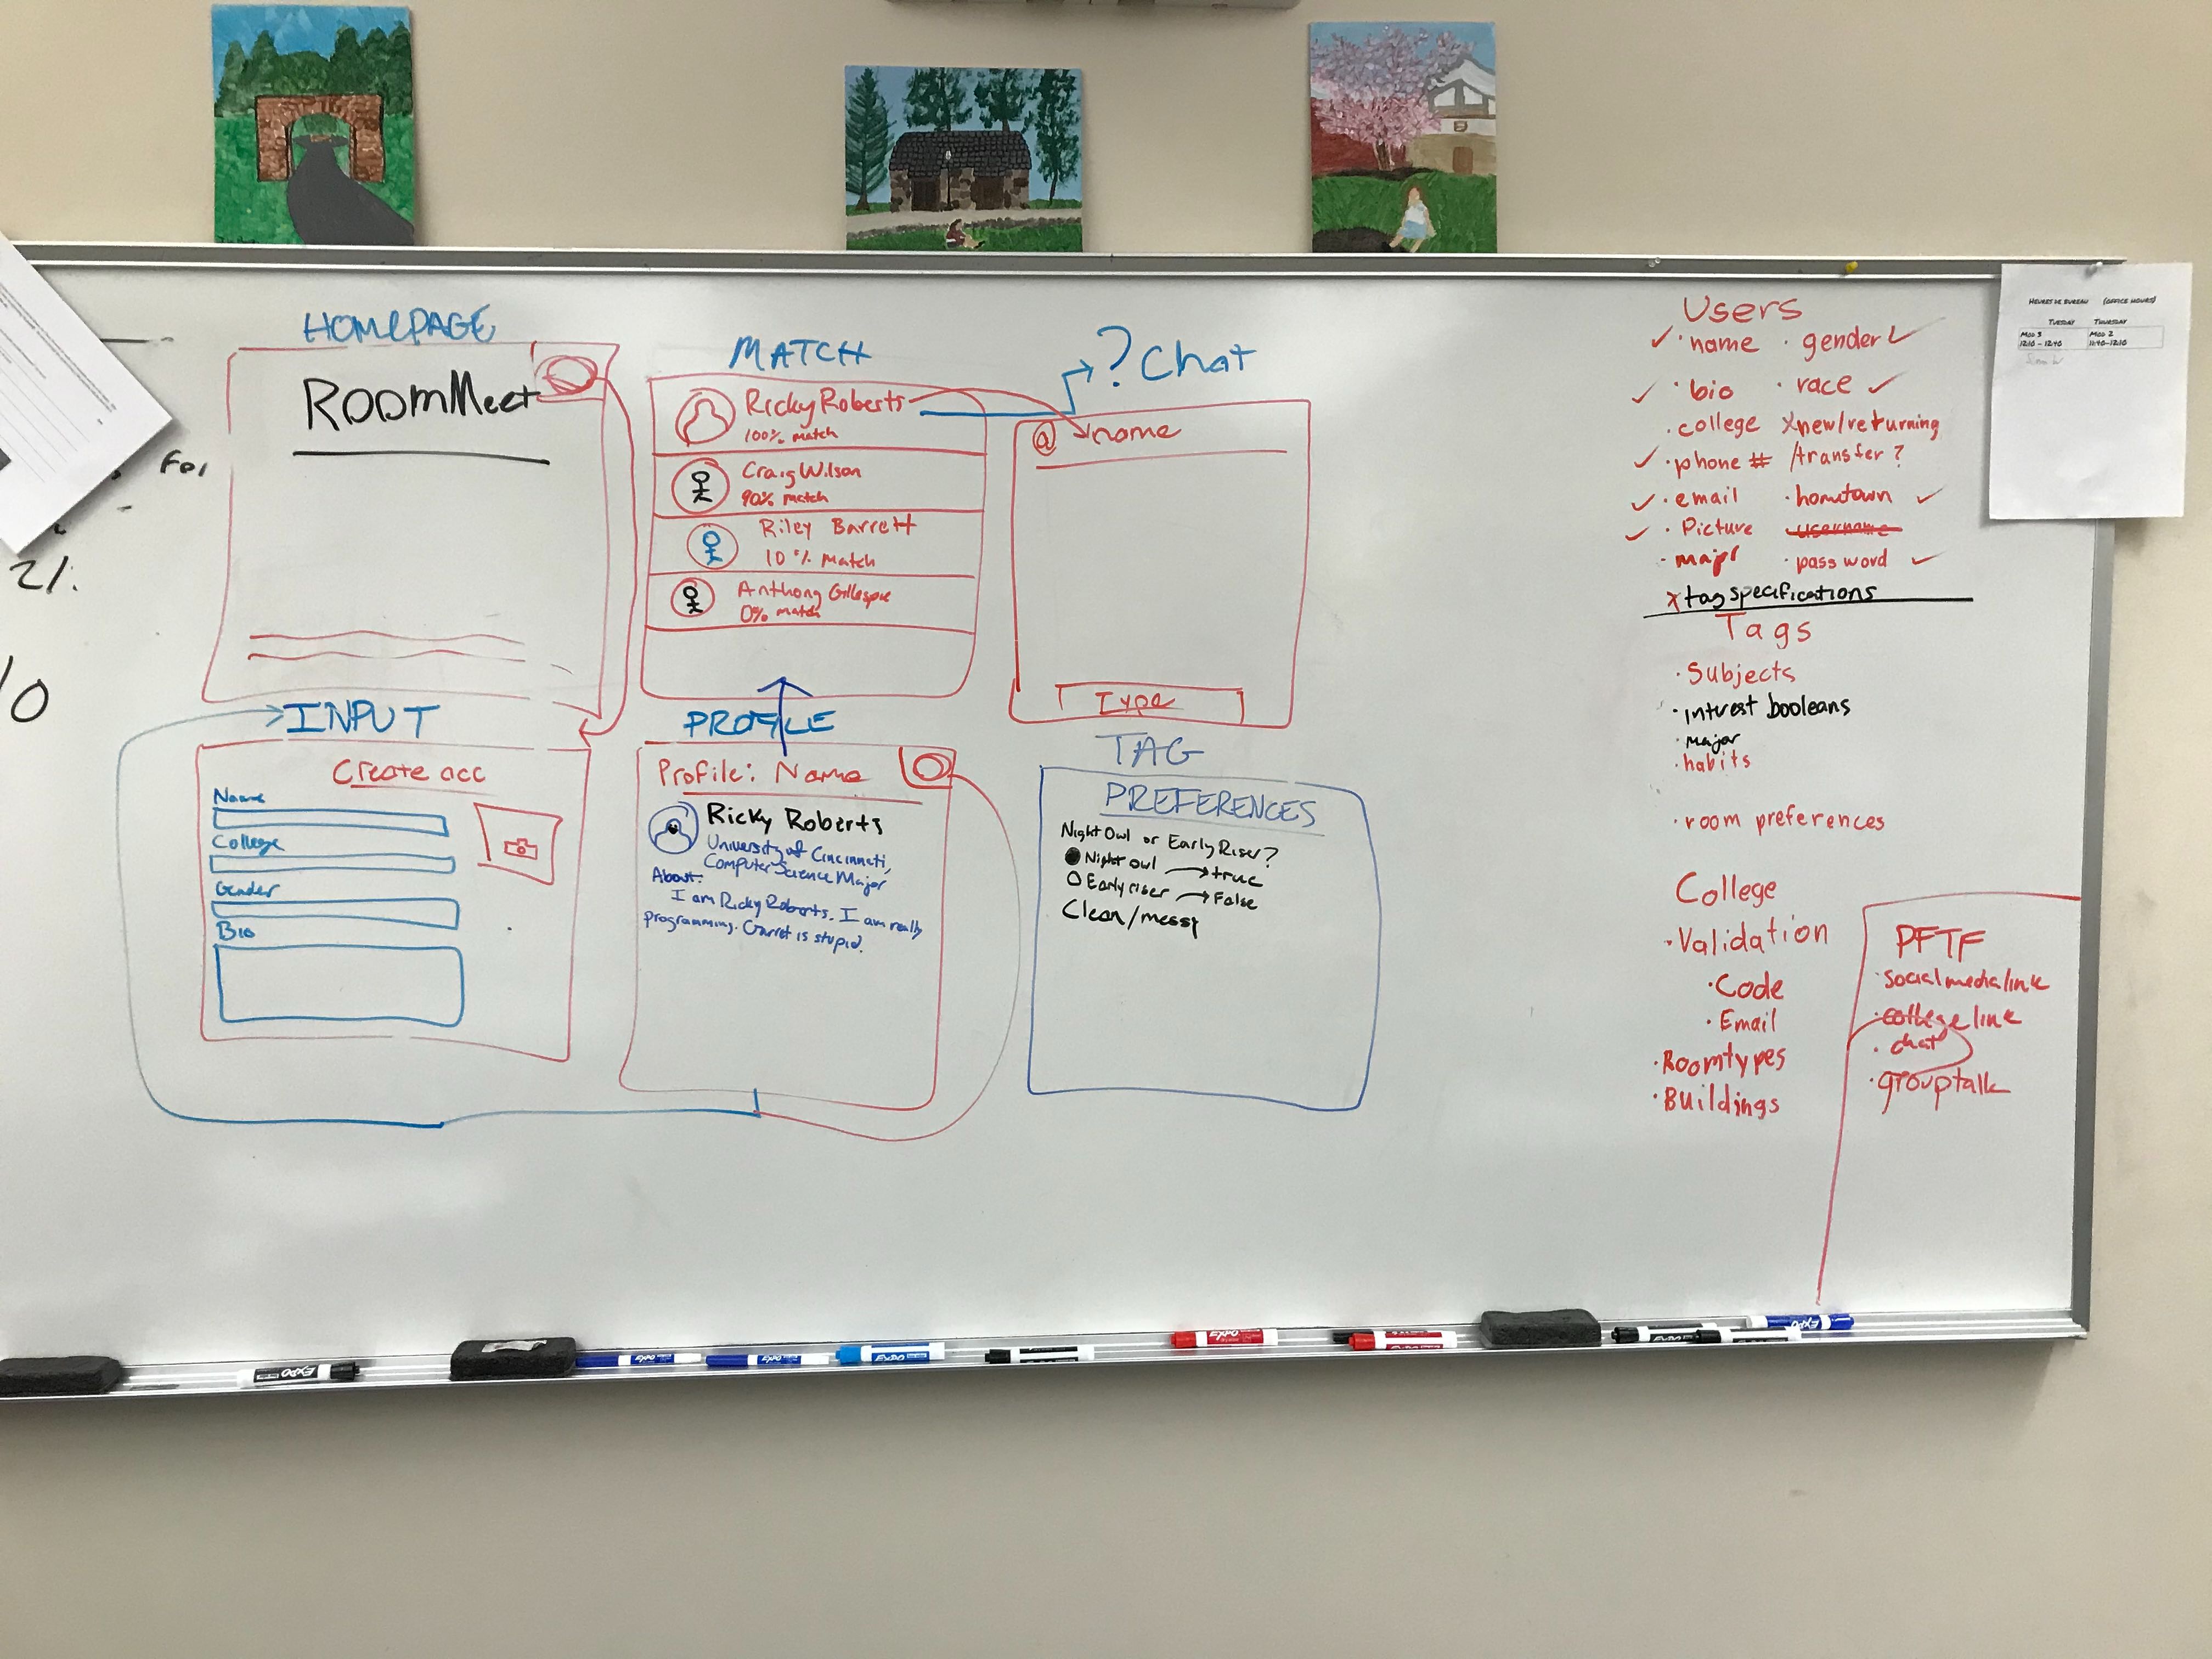 HOMEPAGE
RoomMeet
MATCH
Ricky Roberts
100% match
Craig Wilson
90% match
Riley Barrett
10% Match
Anthony Gillespie
0% match
? Chat
@ name
Type
INPUT
Create acc
Name
College
Gender
Bio
PROFILE
Profile: Name
Ricky Roberts
University of Cincinnati,
Computer Science Major
About:
I am Ricky Roberts. I am really
programming. Garret is stupid.
TAG
PREFERENCES
Night Owl or Early Riser?
Night owl → true
Early riser → False
Clean/messy
Users
✓ · name · gender ✓
✓ · bio · race ✓
· college x new/returning
✓ · phone # /transfer?
✓ · email · hometown ✓
✓ · Picture · username
· major · password ✓
x tag specifications
Tags
· Subjects
· intrest booleans
· major
· habits
· room preferences
College
· Validation
· Code
· Email
· Roomtypes
· Buildings
PFTF
· social media link
· college link
· chat
· grouptalk
HEURES DE BUREAU (OFFICE HOURS)
TUESDAY THURSDAY
MOD 3 MOD 2
12:10 - 12:40 11:40-12:10
For
2/.
10
EXPO
EXPO
EXPO
EXPO
EXPO
EXPO